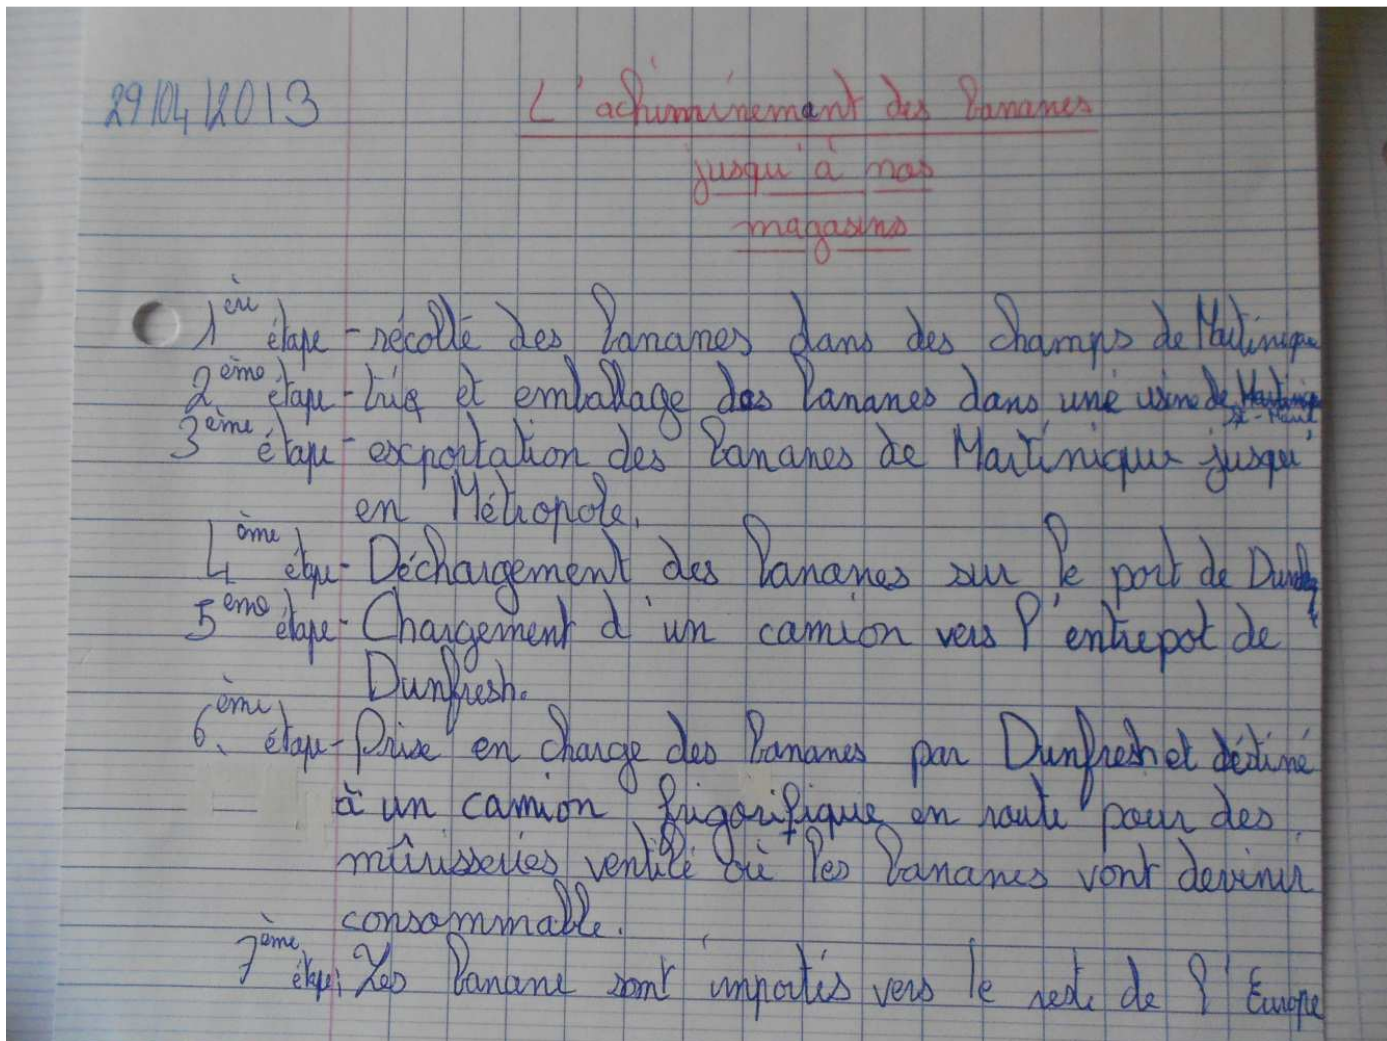 29/04/2013
L'achiminement des bananes
jusqu'à nos
magasins
1ère étape - récolte des bananes dans des champs de Martinique
2ème étape - trie et emballage des bananes dans une usine de
3ème étape - exportation des bananes de Martinique jusqu'
en Métropole.
4ème étape - Déchargement des bananes sur le port de
5ème étape - Chargement d'un camion vers l'entrepot de
Dunfresh.
6ème étape - Prise en charge des bananes par Dunfresh et déstiné
à un camion frigorifique en route pour des
mûrisseries ventilé où les bananes vont devenir
consommable.
7ème étape: Les banane sont importés vers le reste de l'Europe